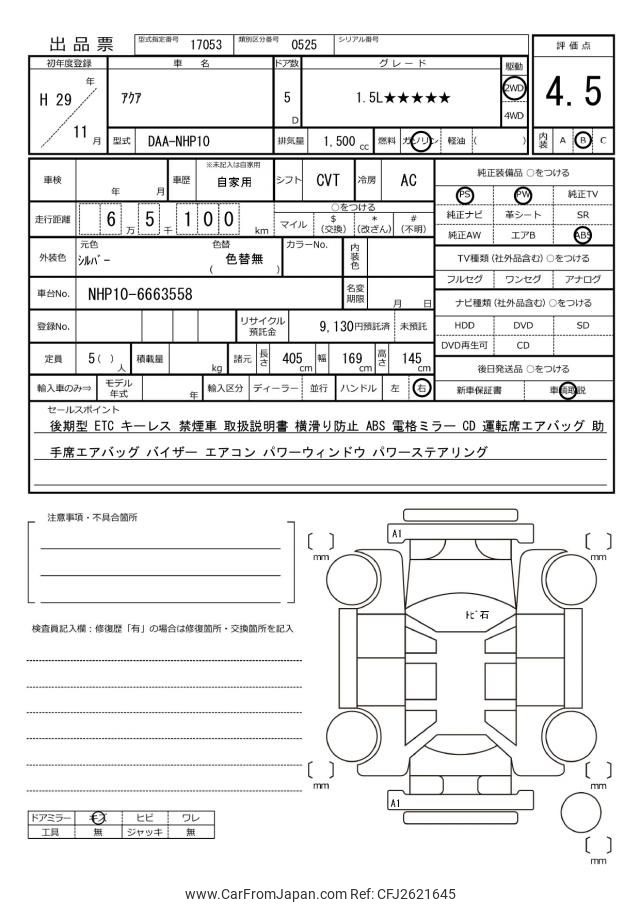 出品票 型式指定番号 17053 類別区分番号 0525 シリアル番号
評価点
4.5
内装 A B C
初年度登録 車名 ドア数 グレード 駆動
H 29 年 11 月 アクア 5 D 1.5L★★★★★ 2WD 4WD
型式 DAA-NHP10 排気量 1,500 cc 燃料 ガソリン 軽油 ( )
車検 年 月 車歴 ※未記入は自家用 自家用 シフト CVT 冷房 AC
走行距離 6 万 5 千 1 0 0 km
○をつける
マイル $ (交換) * (改ざん) # (不明)
外装色 元色 シルバー 色替 ( 色替無 ) カラーNo. 内装色
車台No. NHP10-6663558 名変期限 月 日
登録No. リサイクル預託金 9,130円預託済 未預託
定員 5( ) 人 積載量 kg 諸元 長さ 405 cm 幅 169 cm 高さ 145 cm
輸入車のみ⇒ モデル年式 年 輸入区分 ディーラー 並行 ハンドル 左 右
純正装備品 ○をつける
PS PW 純正TV
純正ナビ 革シート SR
純正AW エアB ABS
TV種類 (社外品含む) ○をつける
フルセグ ワンセグ アナログ
ナビ種類 (社外品含む) ○をつける
HDD DVD SD
DVD再生可 CD
後日発送品 ○をつける
新車保証書 車輌取説
セールスポイント
後期型 ETC キーレス 禁煙車 取扱説明書 横滑り防止 ABS 電格ミラー CD 運転席エアバッグ 助
手席エアバッグ バイザー エアコン パワーウィンドウ パワーステアリング
注意事項・不具合箇所
検査員記入欄：修復歴「有」の場合は修復箇所・交換箇所を記入
A1
mm
mm
トビ石
mm
mm
A1
mm
ドアミラー キズ ヒビ ワレ
工具 無 ジャッキ 無
www.CarFromJapan.com Ref: CFJ2621645